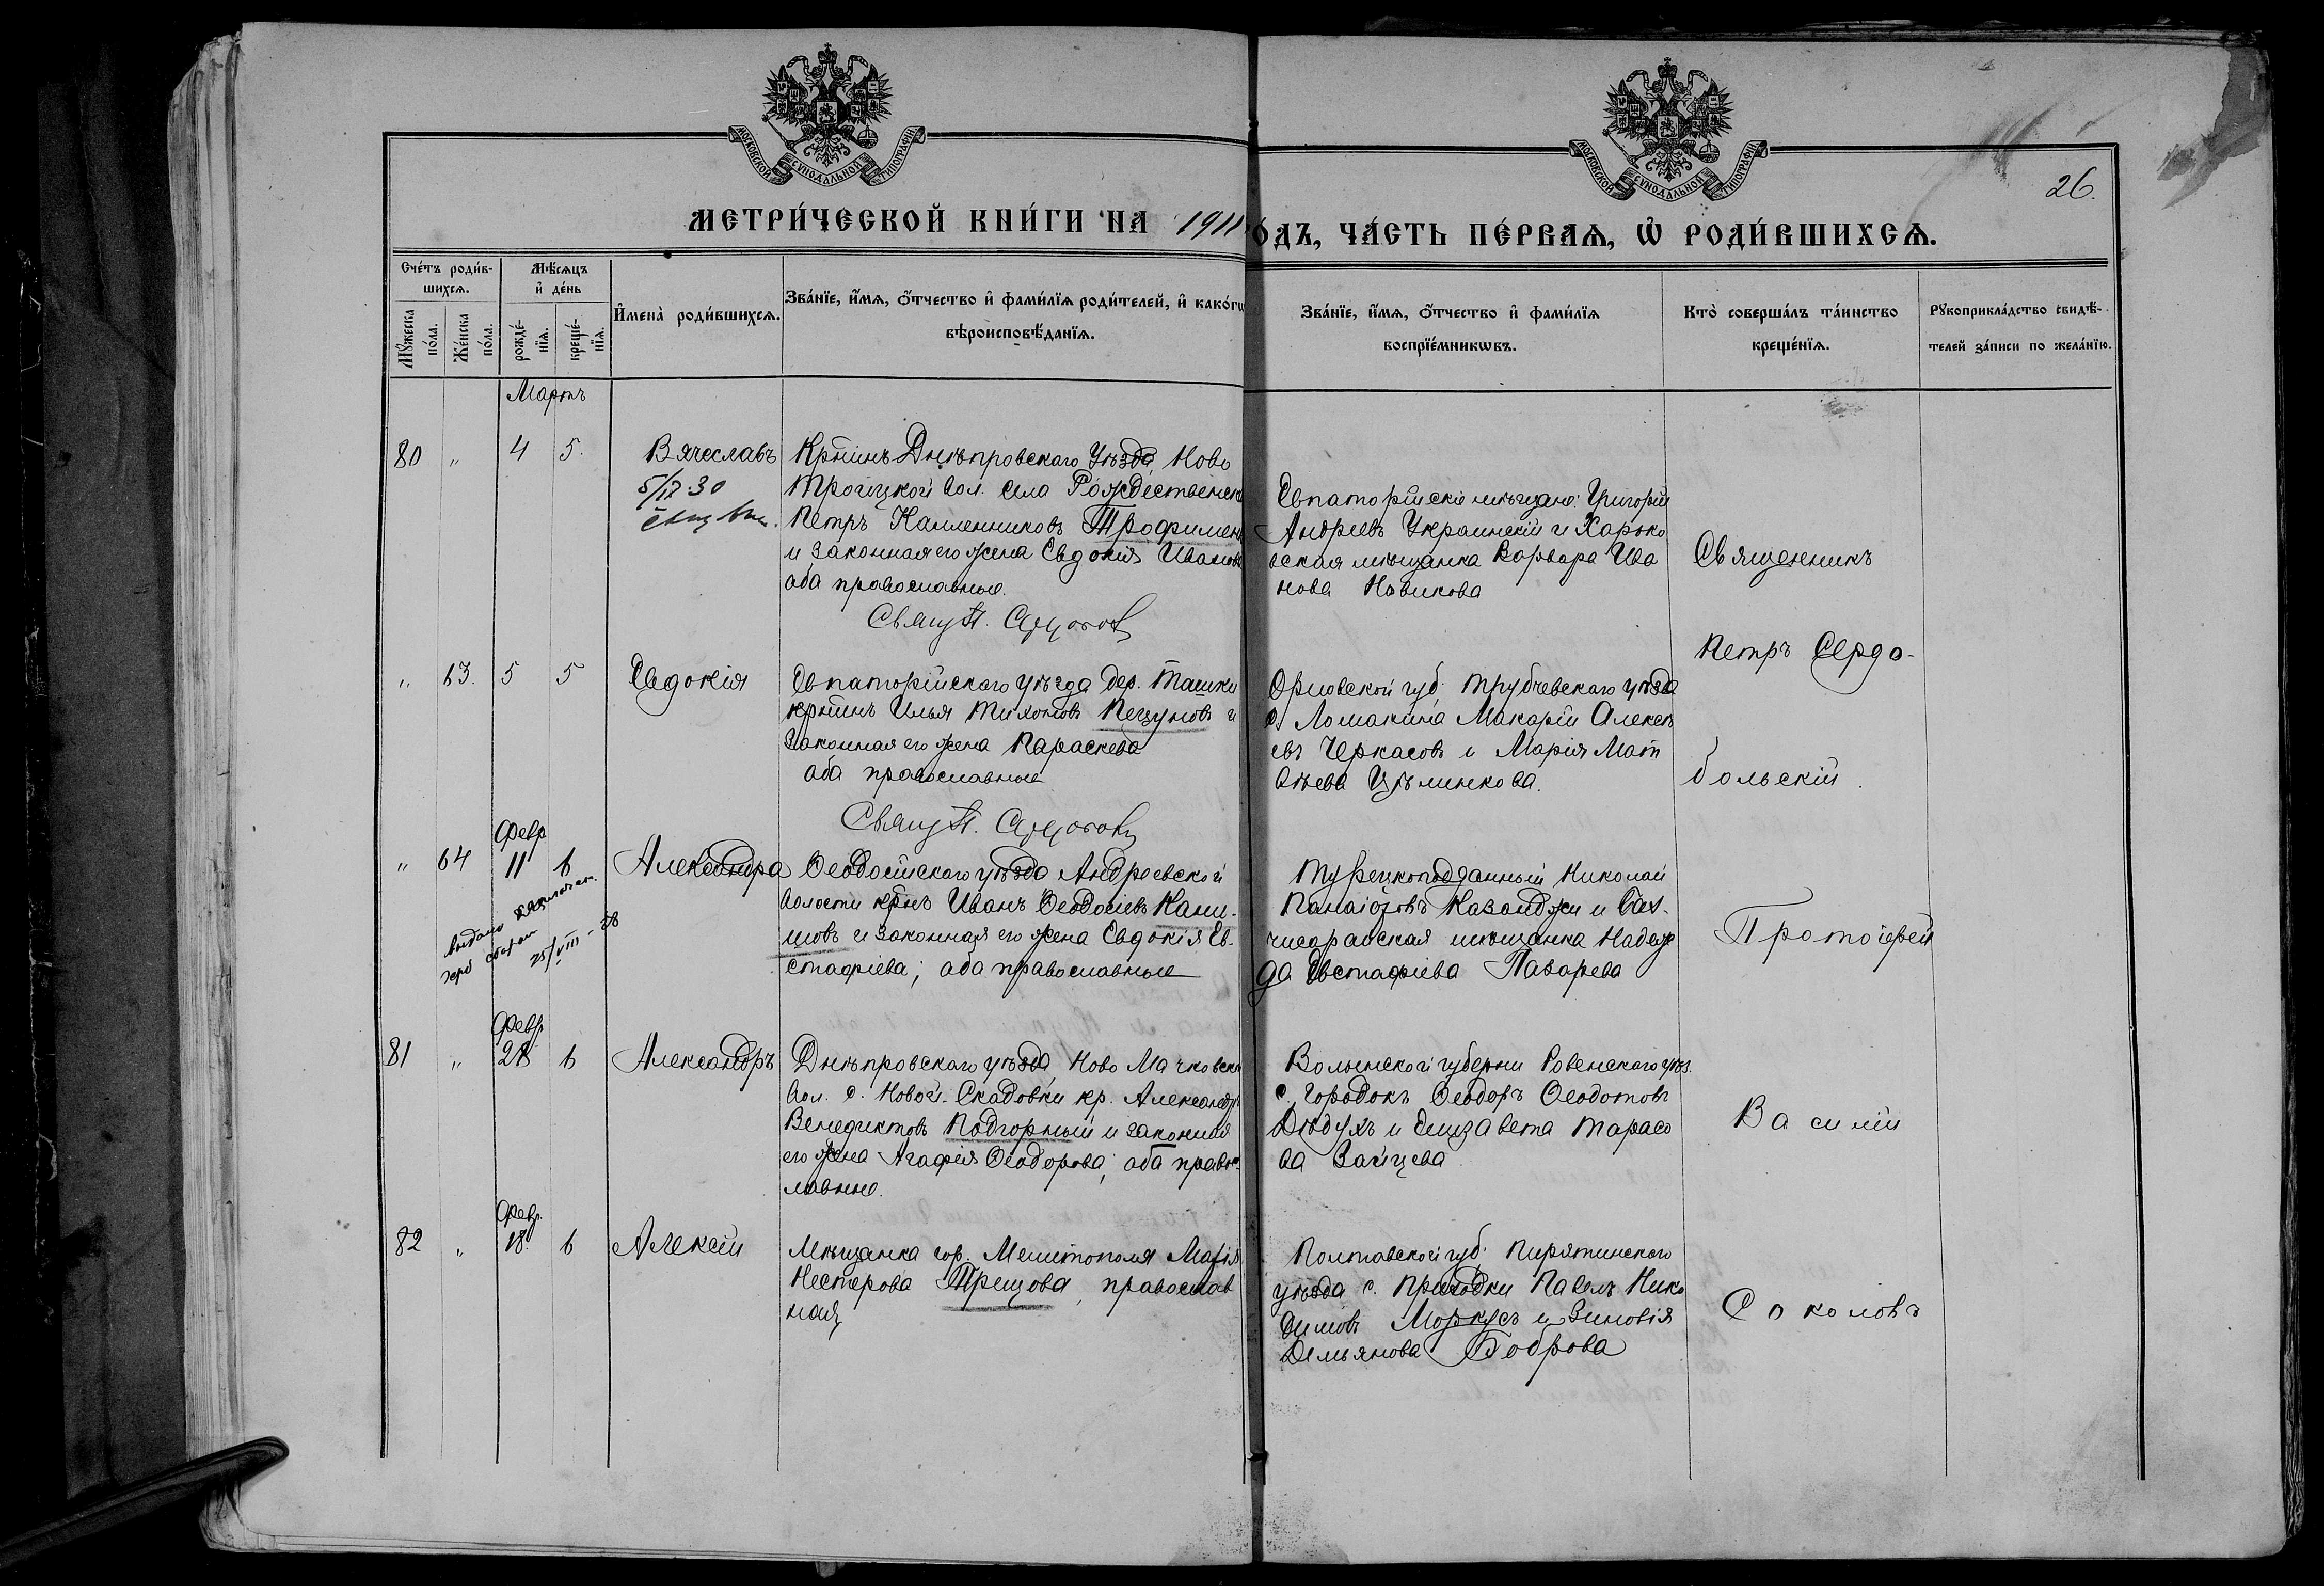 МОСКОВСКОЙ СѴНОДАЛЬНОЙ ТИПОГРАФІИ
МОСКОВСКОЙ СѴНОДАЛЬНОЙ ТИПОГРАФІИ
26.
МЕТРИ́ЧЕСКОЙ КНИ́ГИ НА 1911 ГО́ДЪ, ЧА́СТЬ ПЕ́РВАѦ, Ѽ РОДИ́ВШИХСѦ.
Сче́тъ роди́в-
шихсѧ.
Мѣ́сѧцъ
и҆ де́нь
Мꙋ́жеска
по́ла.
Же́нска
по́ла.
рожде́-
нїѧ.
креще́-
нїѧ.
И҆мена̀ роди́вшихсѧ.
Зва́нїе, и҆́мѧ, ѻ҆́тчество и҆ фами́лїѧ роди́телей, и҆ како́гѡ
вѣроисповѣ́данїѧ.
Зва́нїе, и҆́мѧ, ѻ҆́тчество и҆ фами́лїѧ
воспрїе́мникѡвъ.
Кто̀ соверша́лъ та́инство
креще́нїѧ.
Рꙋкоприкла́дство свидѣ́-
телей за́писи по жела́нїю.
Мартъ
80 " 4 5. Вячеславъ
5/IV 30
Крт̃инъ Днѣпровскаго Уѣзда, Ново
Троицкой вол. села Рождественска
Петръ Каллениковъ Трофимен
и законная его жена Евдокія Иванов
оба православные.
Свящ П.
Евпаторійскіе мѣщане: Григорій
Андреевъ Украинскій и Харько
вская мѣщанка Варвара Ива
нова Новикова
Священникъ
Петръ Сердо-
больскій.
" 63. 5 5 Евдокія
Евпаторійскаго уѣзда дер. Ташки
крт̃инъ Илья Тихоновъ Пецуновъ и
законная его жена Параскева
оба православные
Свящ П.
Орловской губ. Трубчевскаго уѣзда
с. Ломакина Макарій Алексѣ
евъ Черкасовъ и Марія Мат
вѣева
Февр
" 64 11 6 Александра
выдано
герб сбором
25/VIII - 28
Ѳеодосійскаго уѣзда Андреевской
волости крнъ Иванъ Ѳеодосіевъ Кани-
шовъ и законная его жена Евдокія Ев-
стафіева; оба православные
Турецкоподданный Николай
Панаіотовъ Казанджи и Бах-
чисарайская мѣщанка Надеж
да Евстафіева Лазарева
Протоіерей
Февр
81 " 28 6 Александръ
Днѣпровскаго уѣзда Ново Мачковск
вол. с. Новой-Скадовки кр. Александр
Венедиктовъ Подгорный и законная
его жена Агафія Ѳеодорова; оба правос
лавные.
Волынской губерни Ровенскаго уѣз.
с. Городокъ Ѳеодоръ Ѳеодотовъ
Дѣдухъ и Елизавета Тарасо
ва Зайцева
Василій
Февр.
82 " 18. 6 Алексій
Мѣщанка гор. Мелитополя Марія
Нестерова Трещова, православ
ная
Полтавской губ. Пирятинскаго
уѣзда с. Приходки Павелъ Нико
димовъ Моркусъ и Зиновія
Демьянова Боброва
Соколовъ